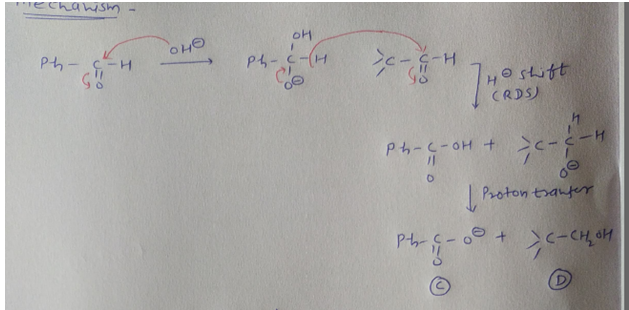 Mechanism -
Ph - C - H
O
OH⊖
OH
Ph - C - H
O⊖
C - C - H
O
H⊖ shift
(RDS)
Ph - C - OH +
O
H
C - C - H
O⊖
Proton transfer
Ph - C - O⊖ + C - CH2OH
O
C D